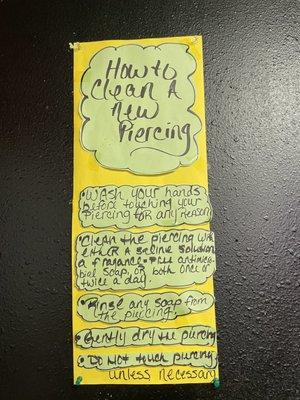 How to
Clean A
New
Piercing
• WASH your hands
before touching your
Piercing for any reason
• Clean the piercing with
EITHER A Saline Solution
a fragance-free antimicro
bial soap, or both once or
twice a day.
• Rinse any soap from
the piercing.
• Gently dry the piercing
• DO NOT touch piercing
unless necessary